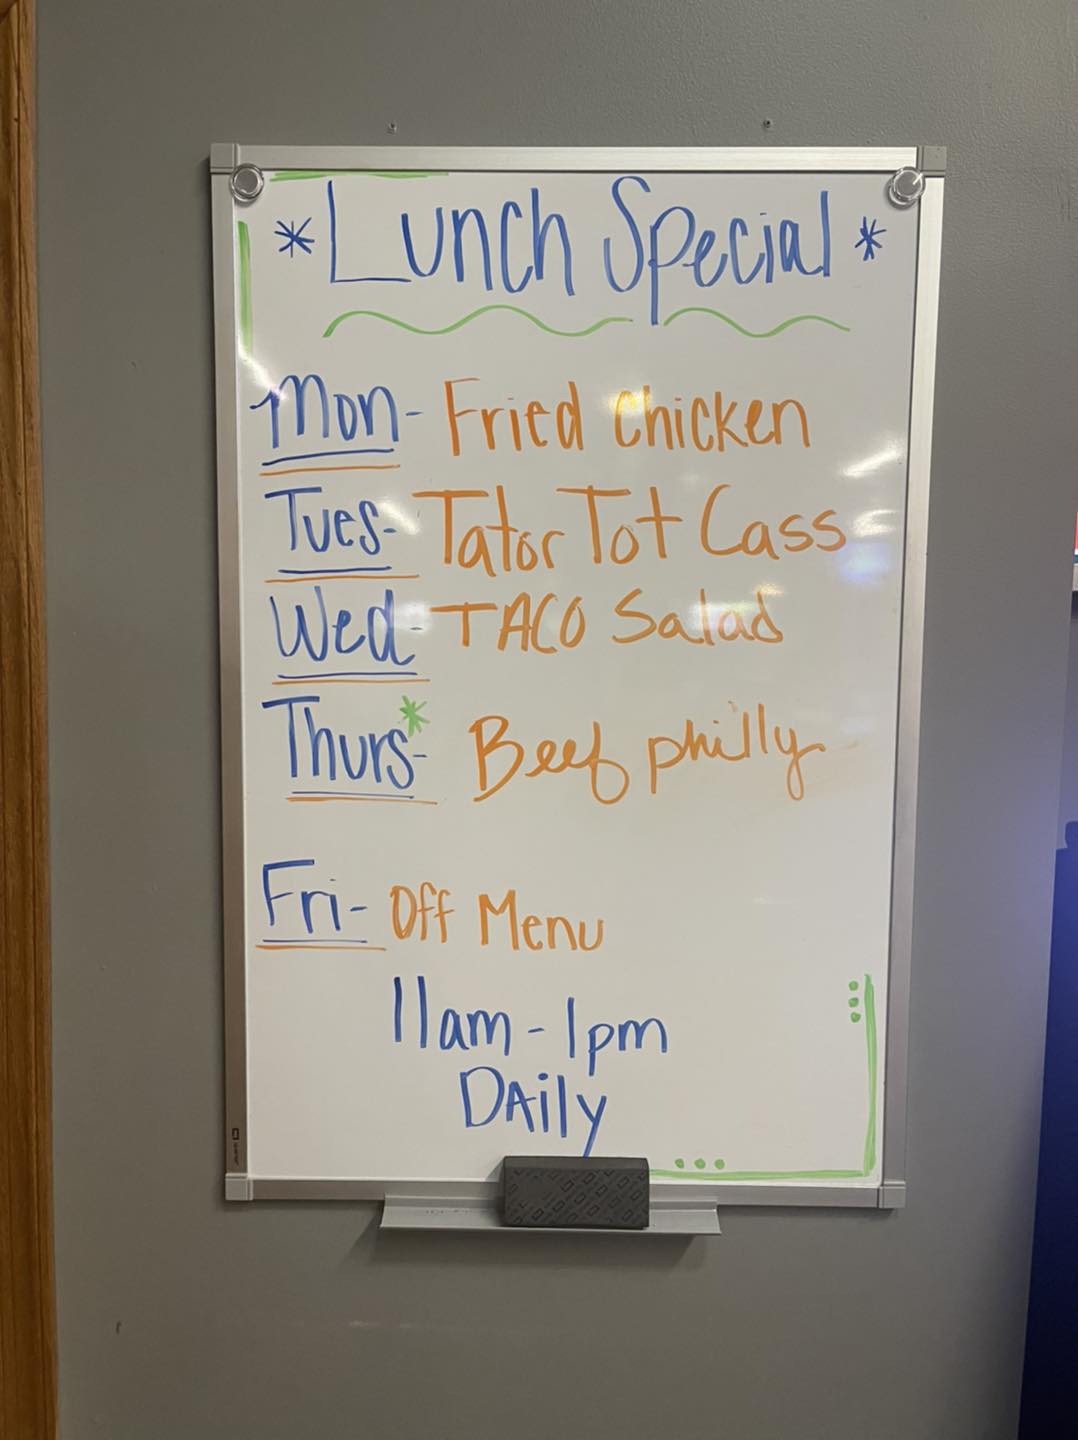 *Lunch Special*
Mon- Fried Chicken
Tues- Tator Tot Cass
Wed- TACO Salad
Thurs*- Beef philly
Fri- Off Menu
11am-1pm
DAily